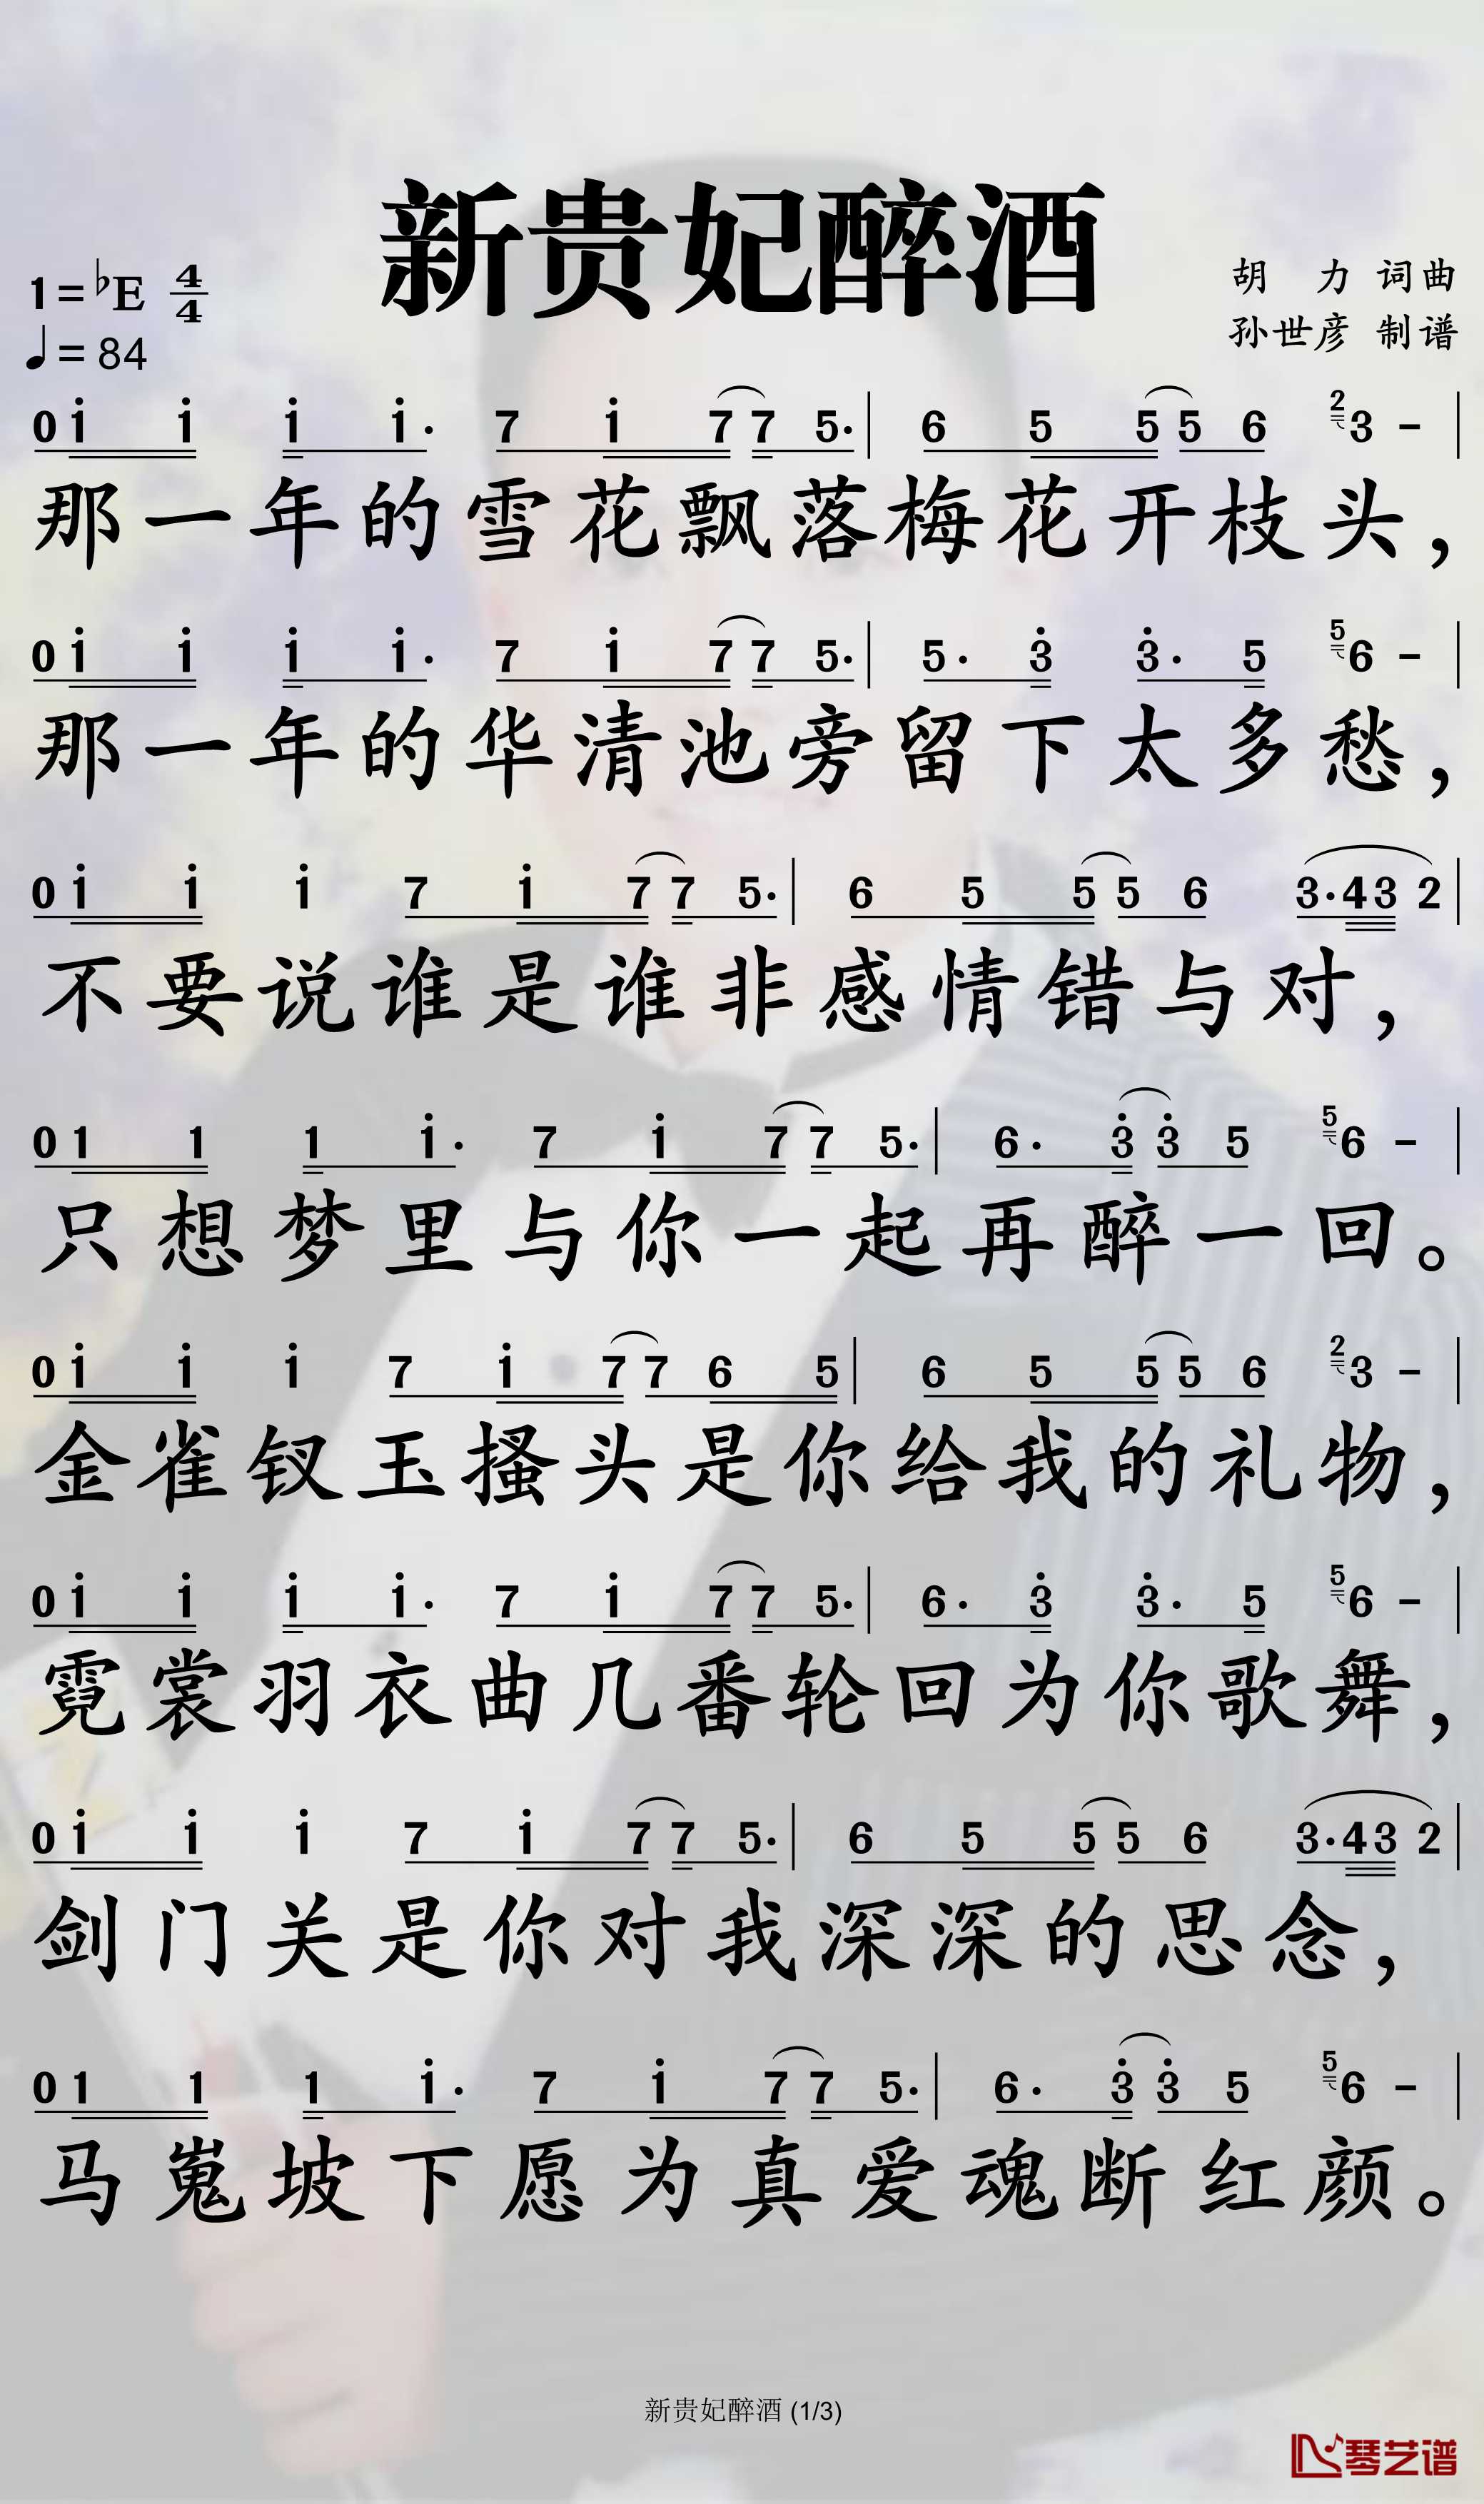 新贵妃醉酒
1=♭E 4/4
♩=84
胡 力 词曲
孙世彦 制谱
0i i i i· 7 i 7 7 5· | 6 5 5 5 6 ²3 - |
那一年的雪花飘落梅花开枝头，
0i i i i· 7 i 7 7 5· | 5· 3̇ 3̇· 5 ⁵6 - |
那一年的华清池旁留下太多愁，
0i i i 7 i 7 7 5· | 6 5 5 5 6 3·43 2 |
不要说谁是谁非感情错与对，
01 1 1 i· 7 i 7 7 5· | 6· 3̇ 3̇ 5 ⁵6 - |
只想梦里与你一起再醉一回。
0i i i 7 i 7 7 6 5 | 6 5 5 5 6 ²3 - |
金雀钗玉搔头是你给我的礼物，
0i i i i· 7 i 7 7 5· | 6· 3̇ 3̇· 5 ⁵6 - |
霓裳羽衣曲几番轮回为你歌舞，
0i i i 7 i 7 7 5· | 6 5 5 5 6 3·43 2 |
剑门关是你对我深深的思念，
01 1 1 i· 7 i 7 7 5· | 6· 3̇ 3̇ 5 ⁵6 - |
马嵬坡下愿为真爱魂断红颜。
新贵妃醉酒 (1/3)
琴艺谱